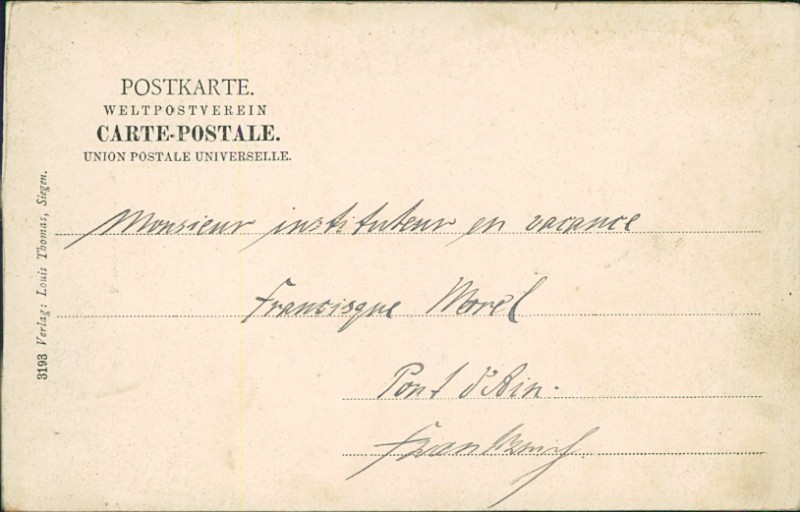 POSTKARTE.
WELTPOSTVEREIN
CARTE-POSTALE.
UNION POSTALE UNIVERSELLE.
Monsieur instituteur en vacance
Francisque Morel
Pont d'Ain.
Frankreich
3193 Verlag: Louis Thomas, Siegen.